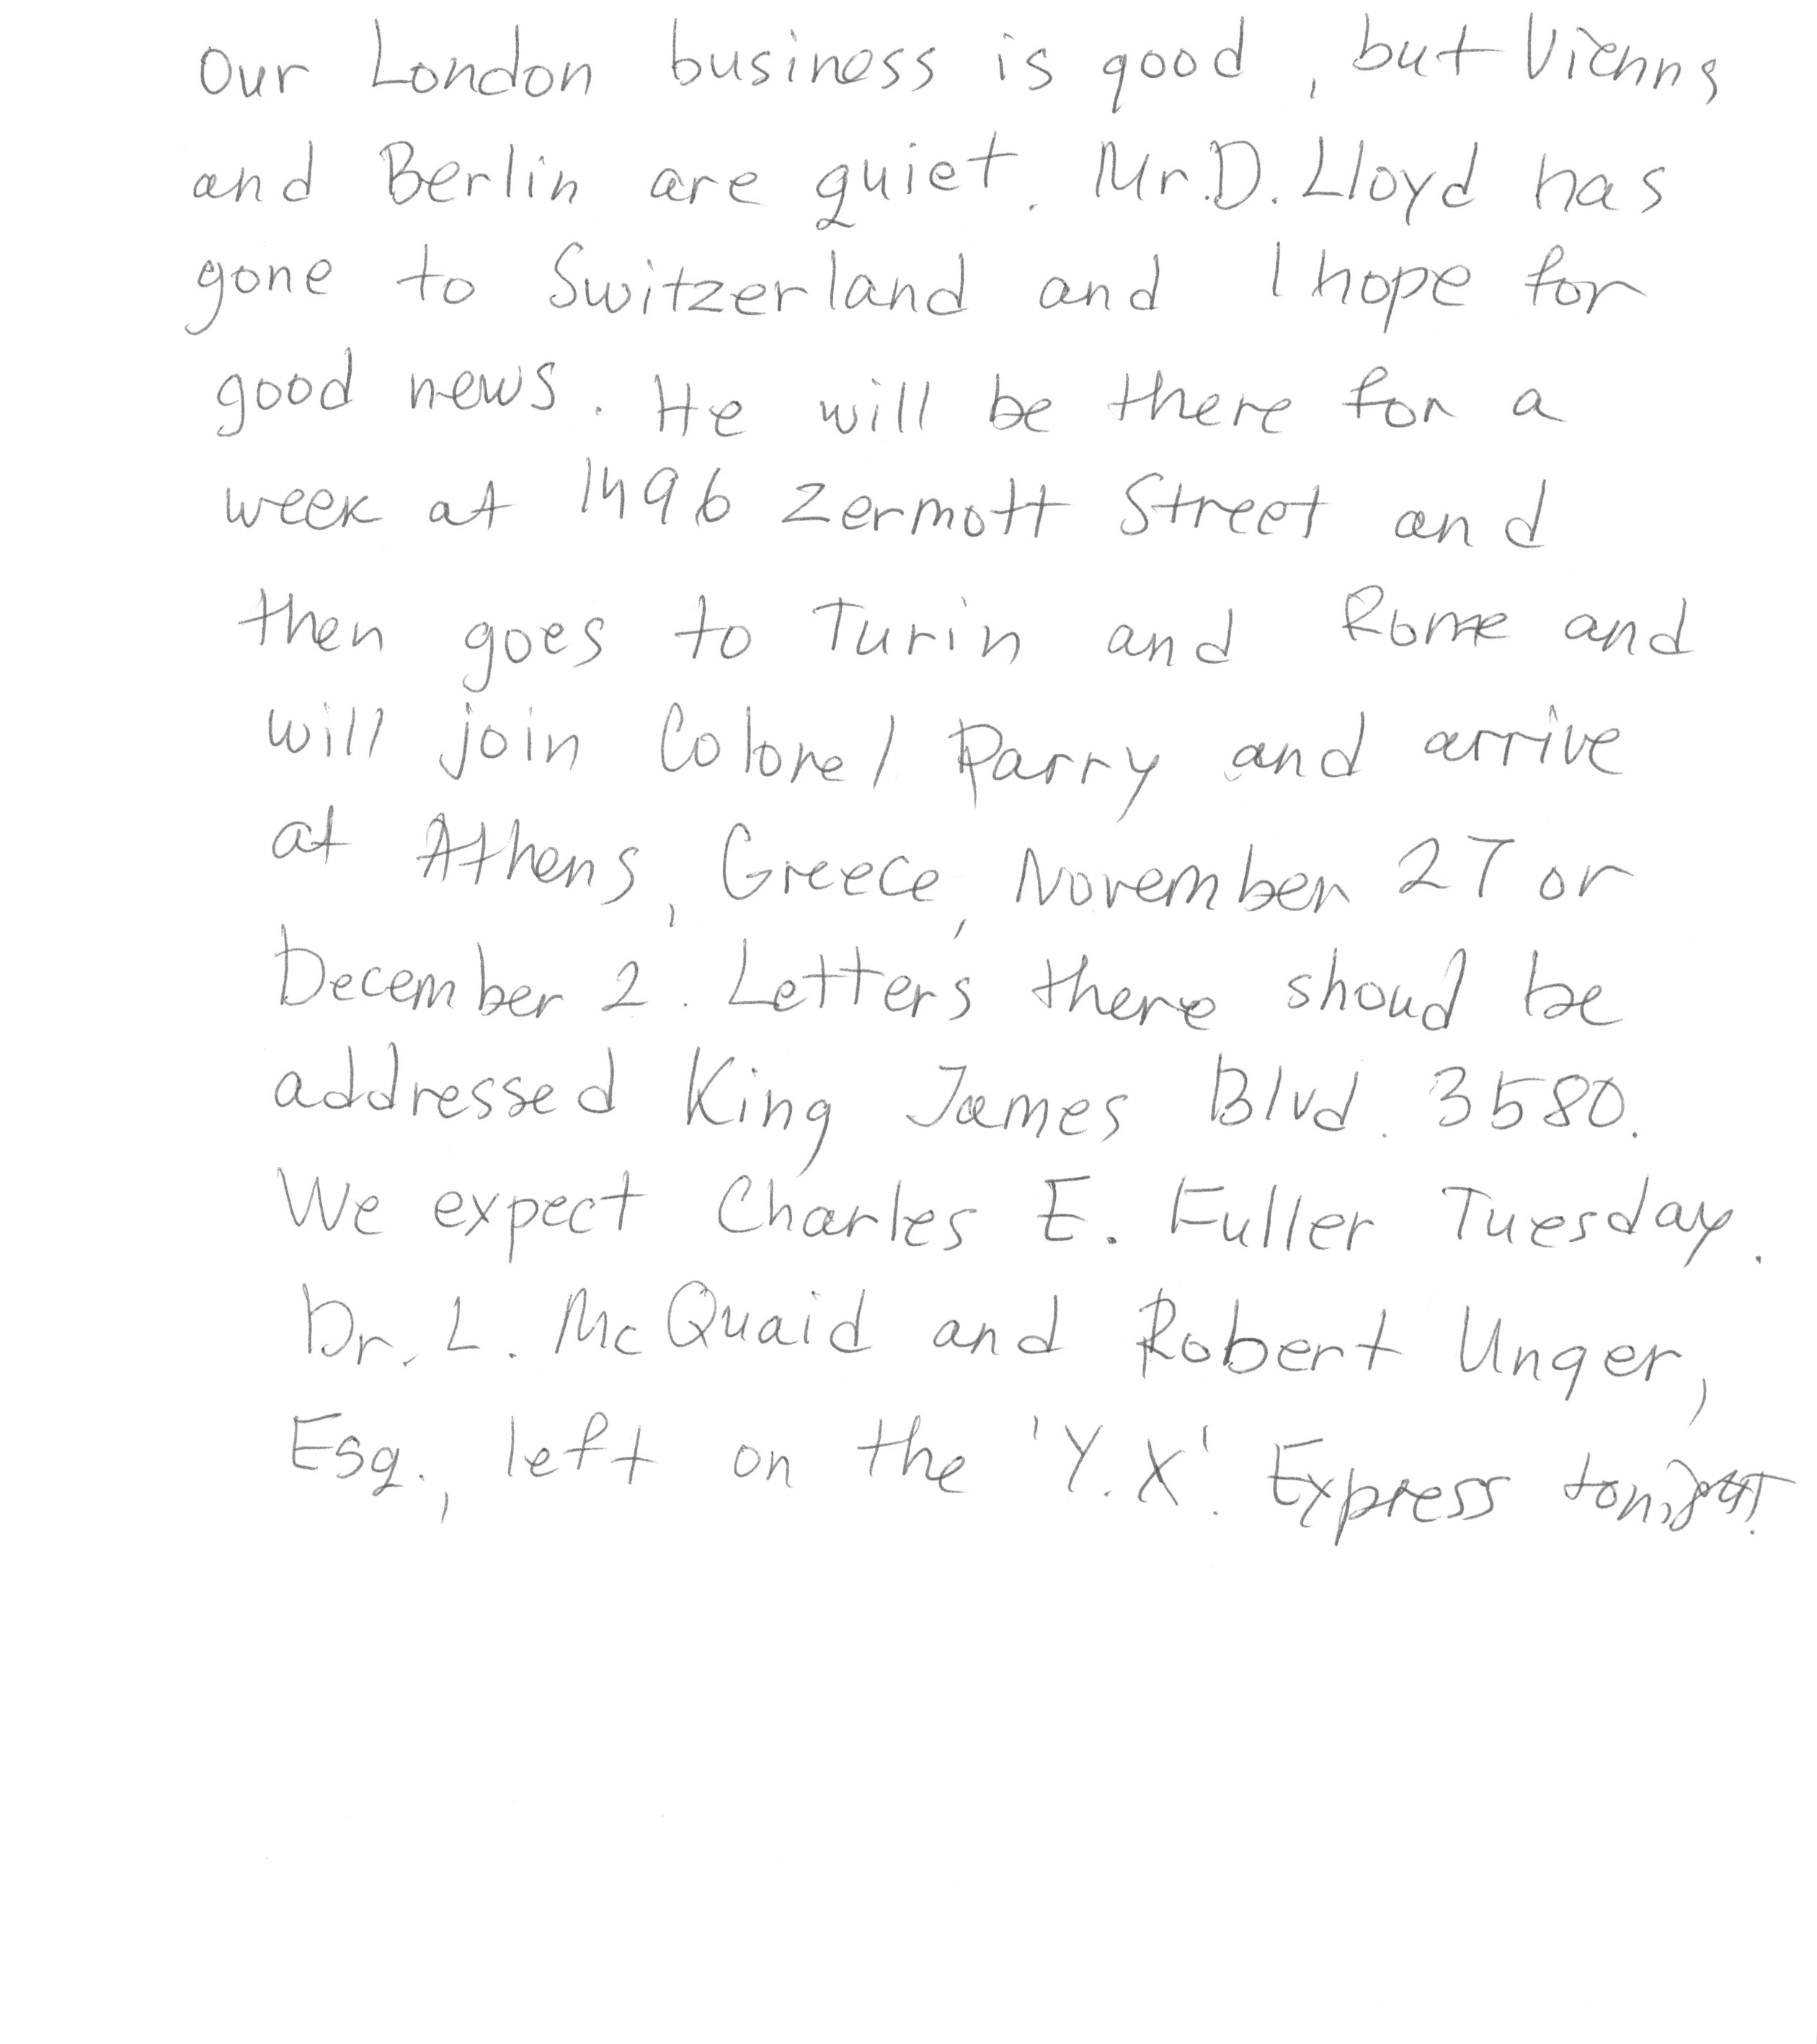 Our London business is good, but Vienns
and Berlin are quiet. Mr. D. Lloyd has
gone to Switzerland and I hope for
good news. He will be there for a
week at 1496 Zermott Street and
then goes to Turin and Rome and
will join Colonel Parry and arrive
at Athens, Greece, November 27 or
December 2. Letters there shoud be
addressed King James Blvd. 3580.
We expect Charles E. Fuller Tuesday.
Dr. L. McQuaid and Robert Unger,
Esq., left on the 'Y.X'. Express tonight.